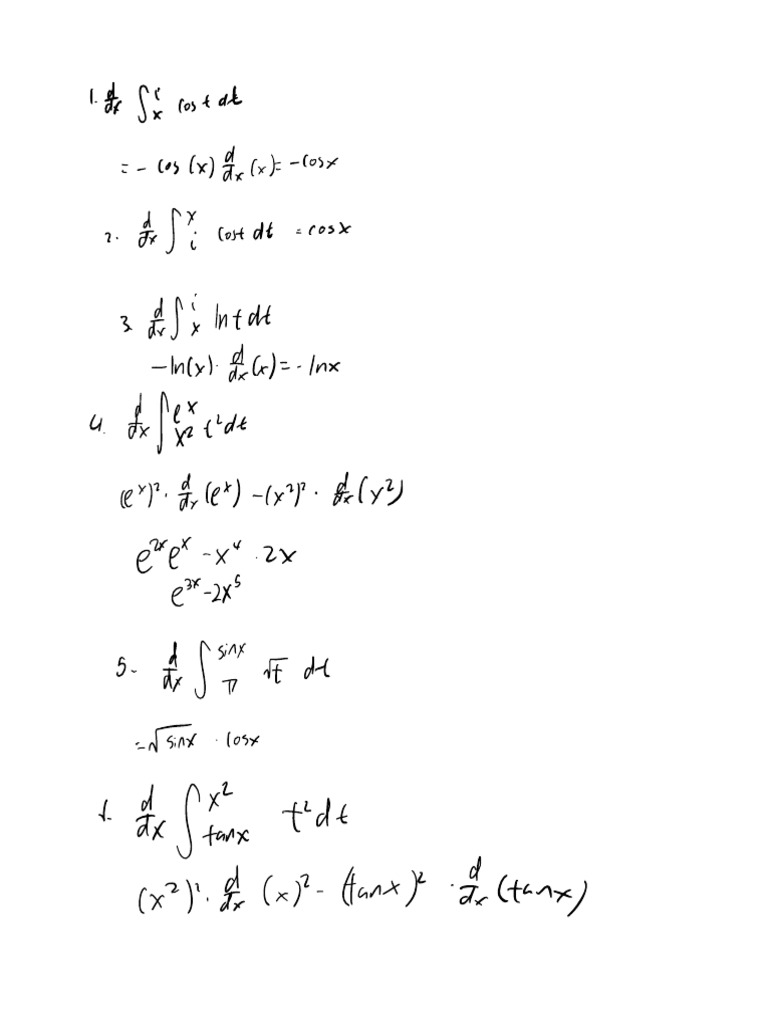 1. d/dx ∫_x^i cos t dt
= - cos (x) d/dx (x) = -cosx
2. d/dx ∫_i^x cost dt = cosx
3. d/dx ∫_x^i ln t dt
-ln(x) · d/dx (x) = - lnx
4. d/dx ∫_{x^2}^{e^x} t^2 dt
(e^x)^2 · d/dx (e^x) - (x^2)^2 · d/dx (y^2)
e^{2x} e^x - x^4 · 2x
e^{3x} - 2x^5
5. d/dx ∫_π^{sinx} √t dt
= √sinx · cosx
d/dx ∫_{tanx}^{x^2} t^2 dt
(x^2)^2 · d/dx (x)^2 - (tanx)^2 · d/dx (tanx)